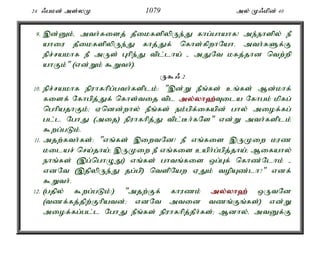 24 ஃபமன் அள்லமு 1079 அல் முஃமின் 40
9. இன்னும், அவர்களைத் தீமைகளிலிருந்து காப்பாயாக! அந்நாளில் நீ
யாரை தீமைகளிலிருந்து காத்துக் கொள்கிறாயோ, அவர்களுக்கு
நிச்சயமாக நீ அருள் புரிந்து விட்டாய் - அதுவே மகத்தான வெற்றி
யாகும்" (என்றும் கூறுவர்).
ருகூஃ 2
10. நிச்சயமாக நிராகரிப்பவர்களிடம்: "இன்று நீங்கள் உங்கள் ஆன்மாக்
களைக் கோபித்துக் கொள்வதை விட அல்லாஹ்வுடைய கோபம் மிகப்
பெரியதாகும்; ஏனென்றால் நீங்கள் நம்பிக்கையின் பால் அழைக்கப்
பட்ட போது (அதை) நிராகரித்து விட்டீர்களே" என்று அவர்களிடம்
கூறப்படும்.
11. அதற்கவர்கள்: "எங்கள் இறைவனே! நீ எங்களை இருமுறை மரண
மடையச் செய்தாய்; இருமுறை நீ எங்களை உயிர்ப்பித்தாய்; ஆகையால்
நாங்கள் (இப்பொழுது) எங்கள் பாவங்களை ஒப்புக் கொண்டோம் -
எனவே (இதிலிருந்து தப்பி) வெளியேற ஏதும் வழியுண்டா?" எனக்
கூறுவர்.
12. (பதில் கூறப்படும்:) "அதற்குக் காரணம் அல்லாஹ் ஒருவனே
(வணக்கத்திற்குரியவன்; எனவே அவனை வணங்குங்கள்) என்று
அழைக்கப்பட்ட போது நீங்கள் நிராகரித்தீர்கள்; ஆனால், அவனுக்கு